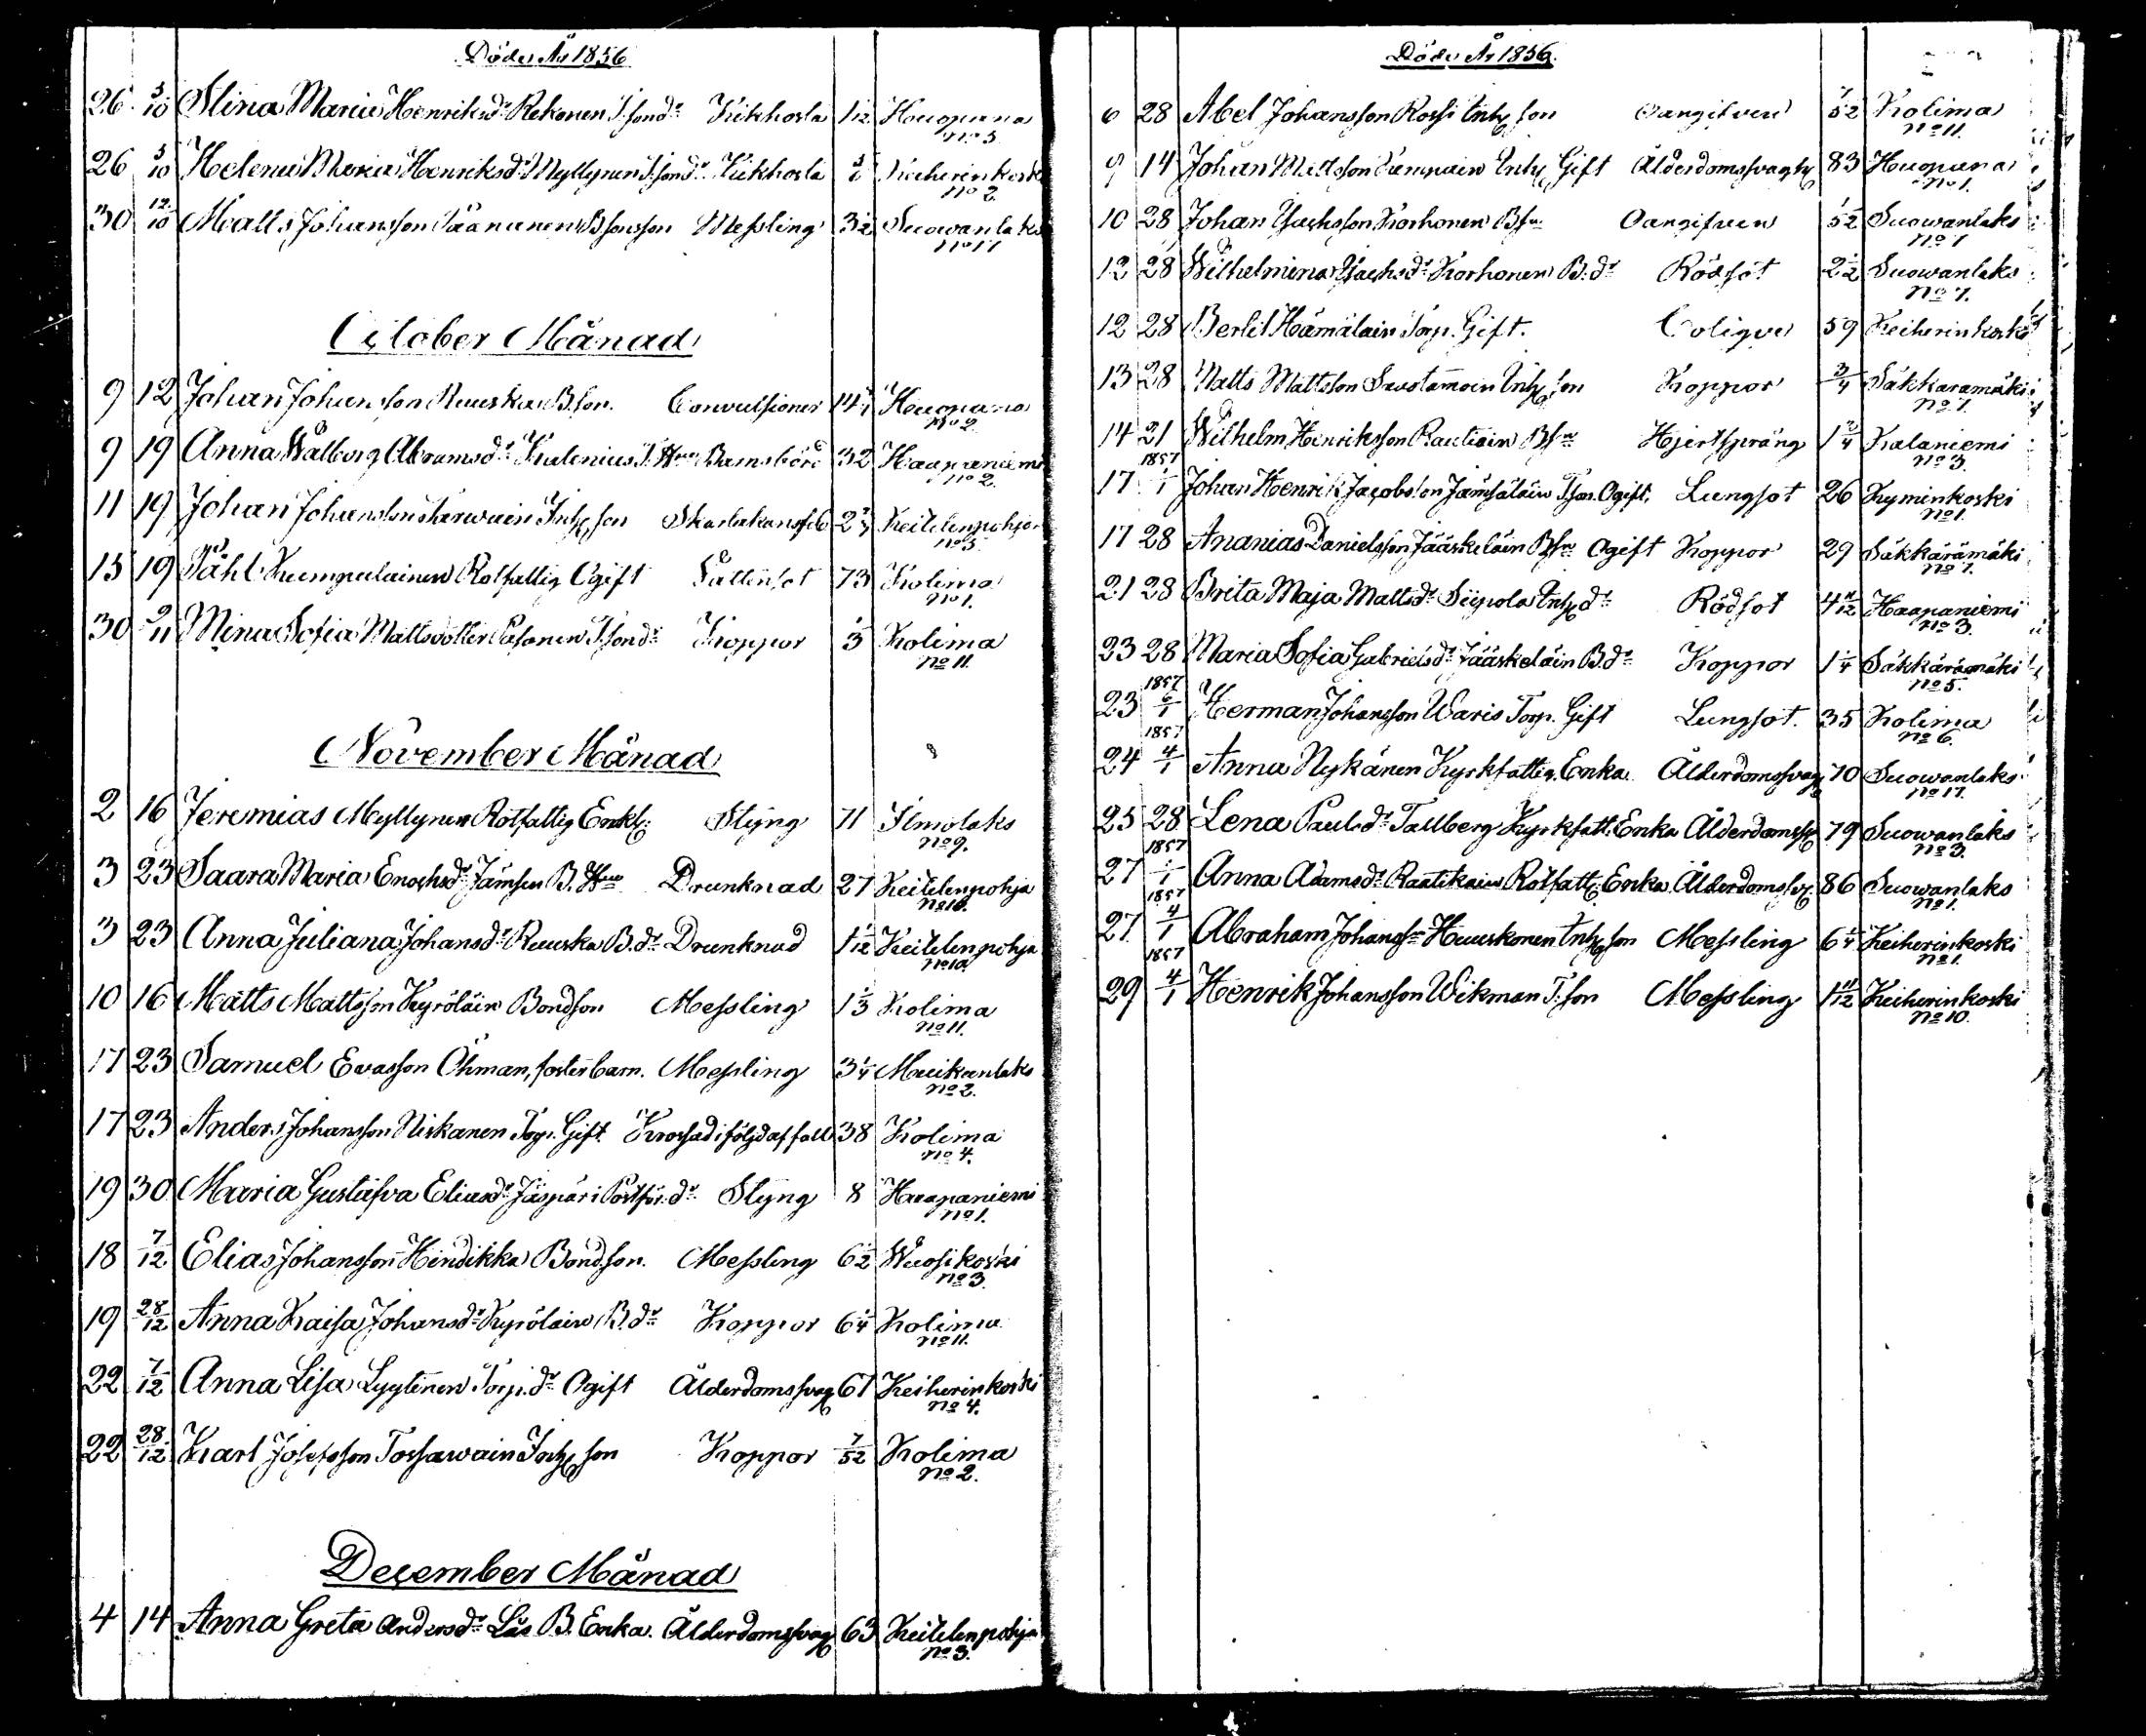 Döde År 1856
26 5/10 Stina Maria Henriksdr Rekonen T.sondr Kikhosta 1/12 Huopana
No 3
26 5/10 Helena Maria Henriksdr Myllynen T.sondr Kikhosta Keiherinkoski
No 2.
30 12/10 Matts Johansson Väänänen B.sonsson Messling 3 1/2 Suowanlaks
No 17
October Månad
9 12 Johan Johansson Ruuska B.son. Convulsioner 14 Huopana
No 2
9 19 Anna Walborg Abramsdr Kalenius T. Hu Barnsbörd 32 Haapaniemi
No 2.
11 19 Johan Johansson Inhs son Skarlakansfeb 2 Keitelenpohja
No 3.
15 19 Påhl Kumpulainen Rotfattig Ogift Vattusot 73 Kolima
No 1.
30 9/11 Mina Sofia Mattsdotter Pasanen T.sondr Koppor 1/3 Kolima
No 11.
November Månad
2 16 Jeremias Myllynen Rotfattig Enkl: Styng 71 Ilmolaks
No 9.
3 23 Saara Maria Enochsdr Jämsen B. Hu Drunknad 27 Keitelenpohja
No 10.
3 23 Anna Juliana Johansdr Ruuska B.dr Drunknad 1/12 Keitelenpohja
No 10
10 16 Matts Mattsson Kyröläin Bondson Messling 1 1/3 Kolima
No 11.
17 23 Samuel Evasson Öhman, fosterbarn. Messling 3 1/4 Muikunlaks
No 2.
17 23 Anders Johansson Niskanen Torp. Gift. Krossad i följd af fall 38 Kolima
No 4.
19 30 Maria Gustafva Eliasdr Jäspäri Postför. dr Styng 8 Haapaniemi
No 1.
18 7/12 Elias Johansson Hindikka Bondson. Messling 6 1/2 Wuosikoski
No 3.
19 28/12 Anna Kaisa Johansdr Kyröläin B.dr Koppor 6 1/4 Kolima
No 11.
22 7/12 Anna Lisa Lyytinen Torp.dr Ogift Ålderdomssvag 67 Keiherinkoski
No 4.
22 28/12 Karl Josefsson Torssawain Inhs son Koppor 7/52 Kolima
No 2.
December Månad
4 14 Anna Greta Andersdr Lås B. Enka. Ålderdomssvag 63 Keitelenpohja
No 3.
Döde År 1856.
6 28 Abel Johansson Rossi Inhs son Oangifven 7/52 Kolima
No 11.
9 14 Johan Mattsson Kumpuin Inhs Gift Ålderdomssvaght 83 Huopana
No 1.
10 28 Johan Isachsson Korhonen Bsn Oangifven 1/52 Suowanlaks
No 7
12 28 Wilhelmina Isachsdr Korhonen B.dr Rödsot 2 1/2 Suowanlaks
No 7.
12 28 Bertil Hämäläin Torp. Gift. Colique 59 Keiherinkoski
13 28 Matts Mattsson Savstamoin Inhs son Koppor 3/4 Säkkaramäki
No 7.
14 21 Wilhelm Henriksson Rautiain Bsn Hjertspräng 1 3/4 Kalaniemi
No 3.
17 1857 1/1 Johan Henrik Jacobsson Jämsäläin T.son. Ogift. Lungsot 26 Kyminkoski
No 1.
17 28 Ananias Danielsson Jääskeläin Bsn Ogift Koppor 29 Säkkärämäki
No 7.
21 28 Brita Maja Mattsdr Siipola Inhs dr Rödsot 4 11/12 Haapaniemi
No 3.
23 28 Maria Sofia Gabrielsdr Jääskeläin B.dr Koppor 1 1/4 Säkkärämäki
No 5.
23 1857 6/1 Herman Johansson Waris Torp. Gift Lungsot. 35 Kolima
No 6.
24 1857 4/1 Anna Nykänen Kyrkfattig. Enka Ålderdomssvag 70 Suowanlaks
No 17.
25 28 Lena Paulsdr Tallberg Kyrkfatt. Enka Ålderdomssv 79 Suowanlaks
No 3.
27 1857 1/1 Anna Adamsdr Raatikain Rotfatt: Enka Ålderdomssv. 86 Suowanlaks
No 1.
27 1857 4/1 Abraham Johansson Huuskonen Inhs son Messling 6 1/4 Keiherinkoski
No 1.
29 1857 4/1 Henrik Johansson Wikman T.son Messling 1 11/12 Keiherinkoski
No 10.